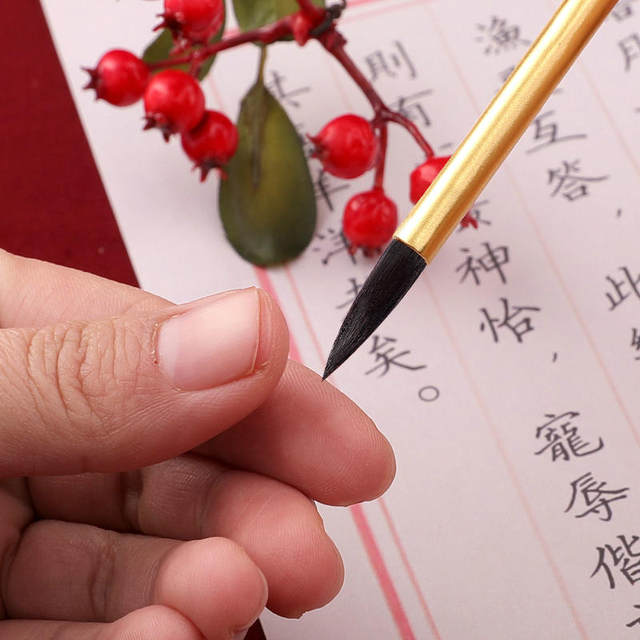 月
漁互答，此
則有神怡，寵辱偕
其洋矣。